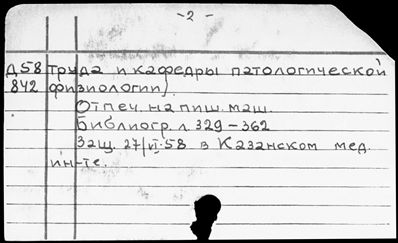 -2-
Д58 труда и кафедры патологической
842 физиологии).
Отпеч. на пиш. маш.
Библиогр. л. 329-362
Защ. 27/VI-58 в Казанском мед.
ин-те.